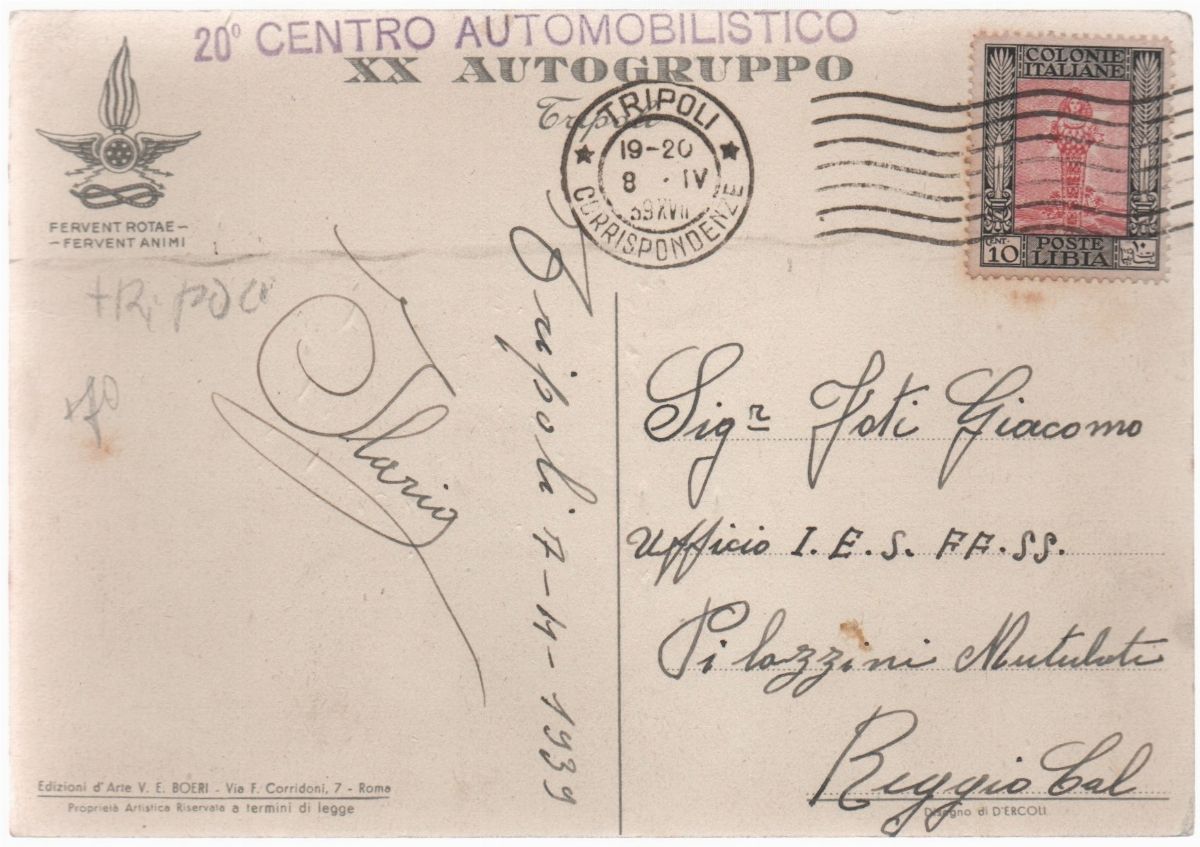 20° CENTRO AUTOMOBILISTICO
XX AUTOGRUPPO
Tripoli
FERVENT ROTAE -
- FERVENT ANIMI
TRIPOLI
19-20
8 . IV
39 XVII
CORRISPONDENZE
COLONIE
ITALIANE
CENT. 10
POSTE
LIBIA
Tripoli
Tripoli 7-4-1939
Ilario
Sigr Foti Giacomo
Ufficio I.E.S. FF.SS.
Pilazzini Mutulati
Reggio Cal
Edizioni d'Arte V. E. BOERI - Via F. Corridoni, 7 - Roma
Proprietà Artistica Riservata a termini di legge
Disegno di D'ERCOLI